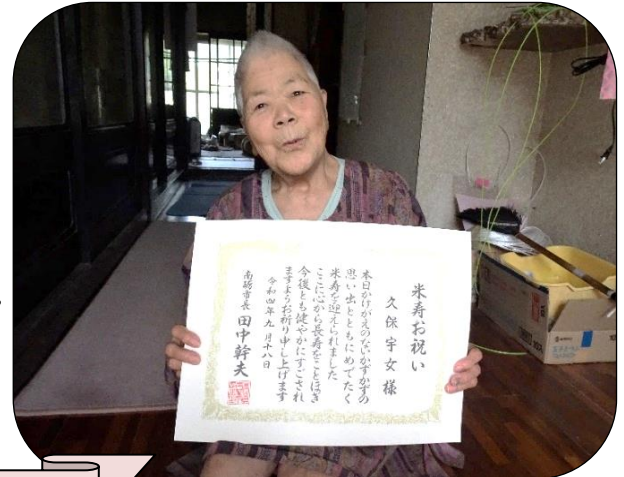 米寿お祝い
久保宇女様
本日かけがえのないかずかずの
思い出とともにめでたく
米寿を迎えられました
ここに心から長寿をことほぎ
今後とも健やかにすごされ
ますようお祈り申し上げます
令和四年九月十八日
南砺市長 田中幹夫